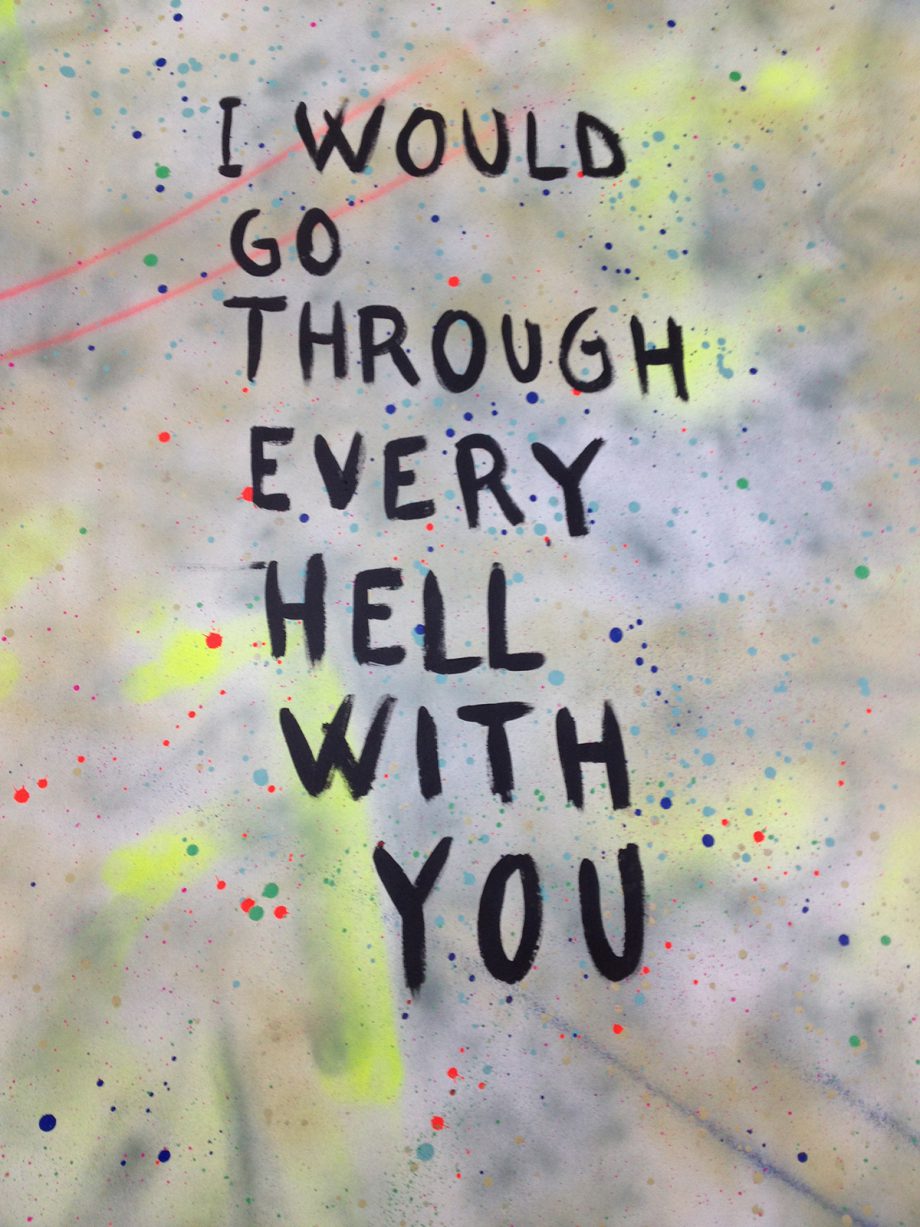 I WOULD
GO
THROUGH
EVERY
HELL
WITH
YOU